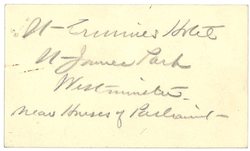 St Ermines Hotel
St James Park
Westminster
near Houses of Parliament